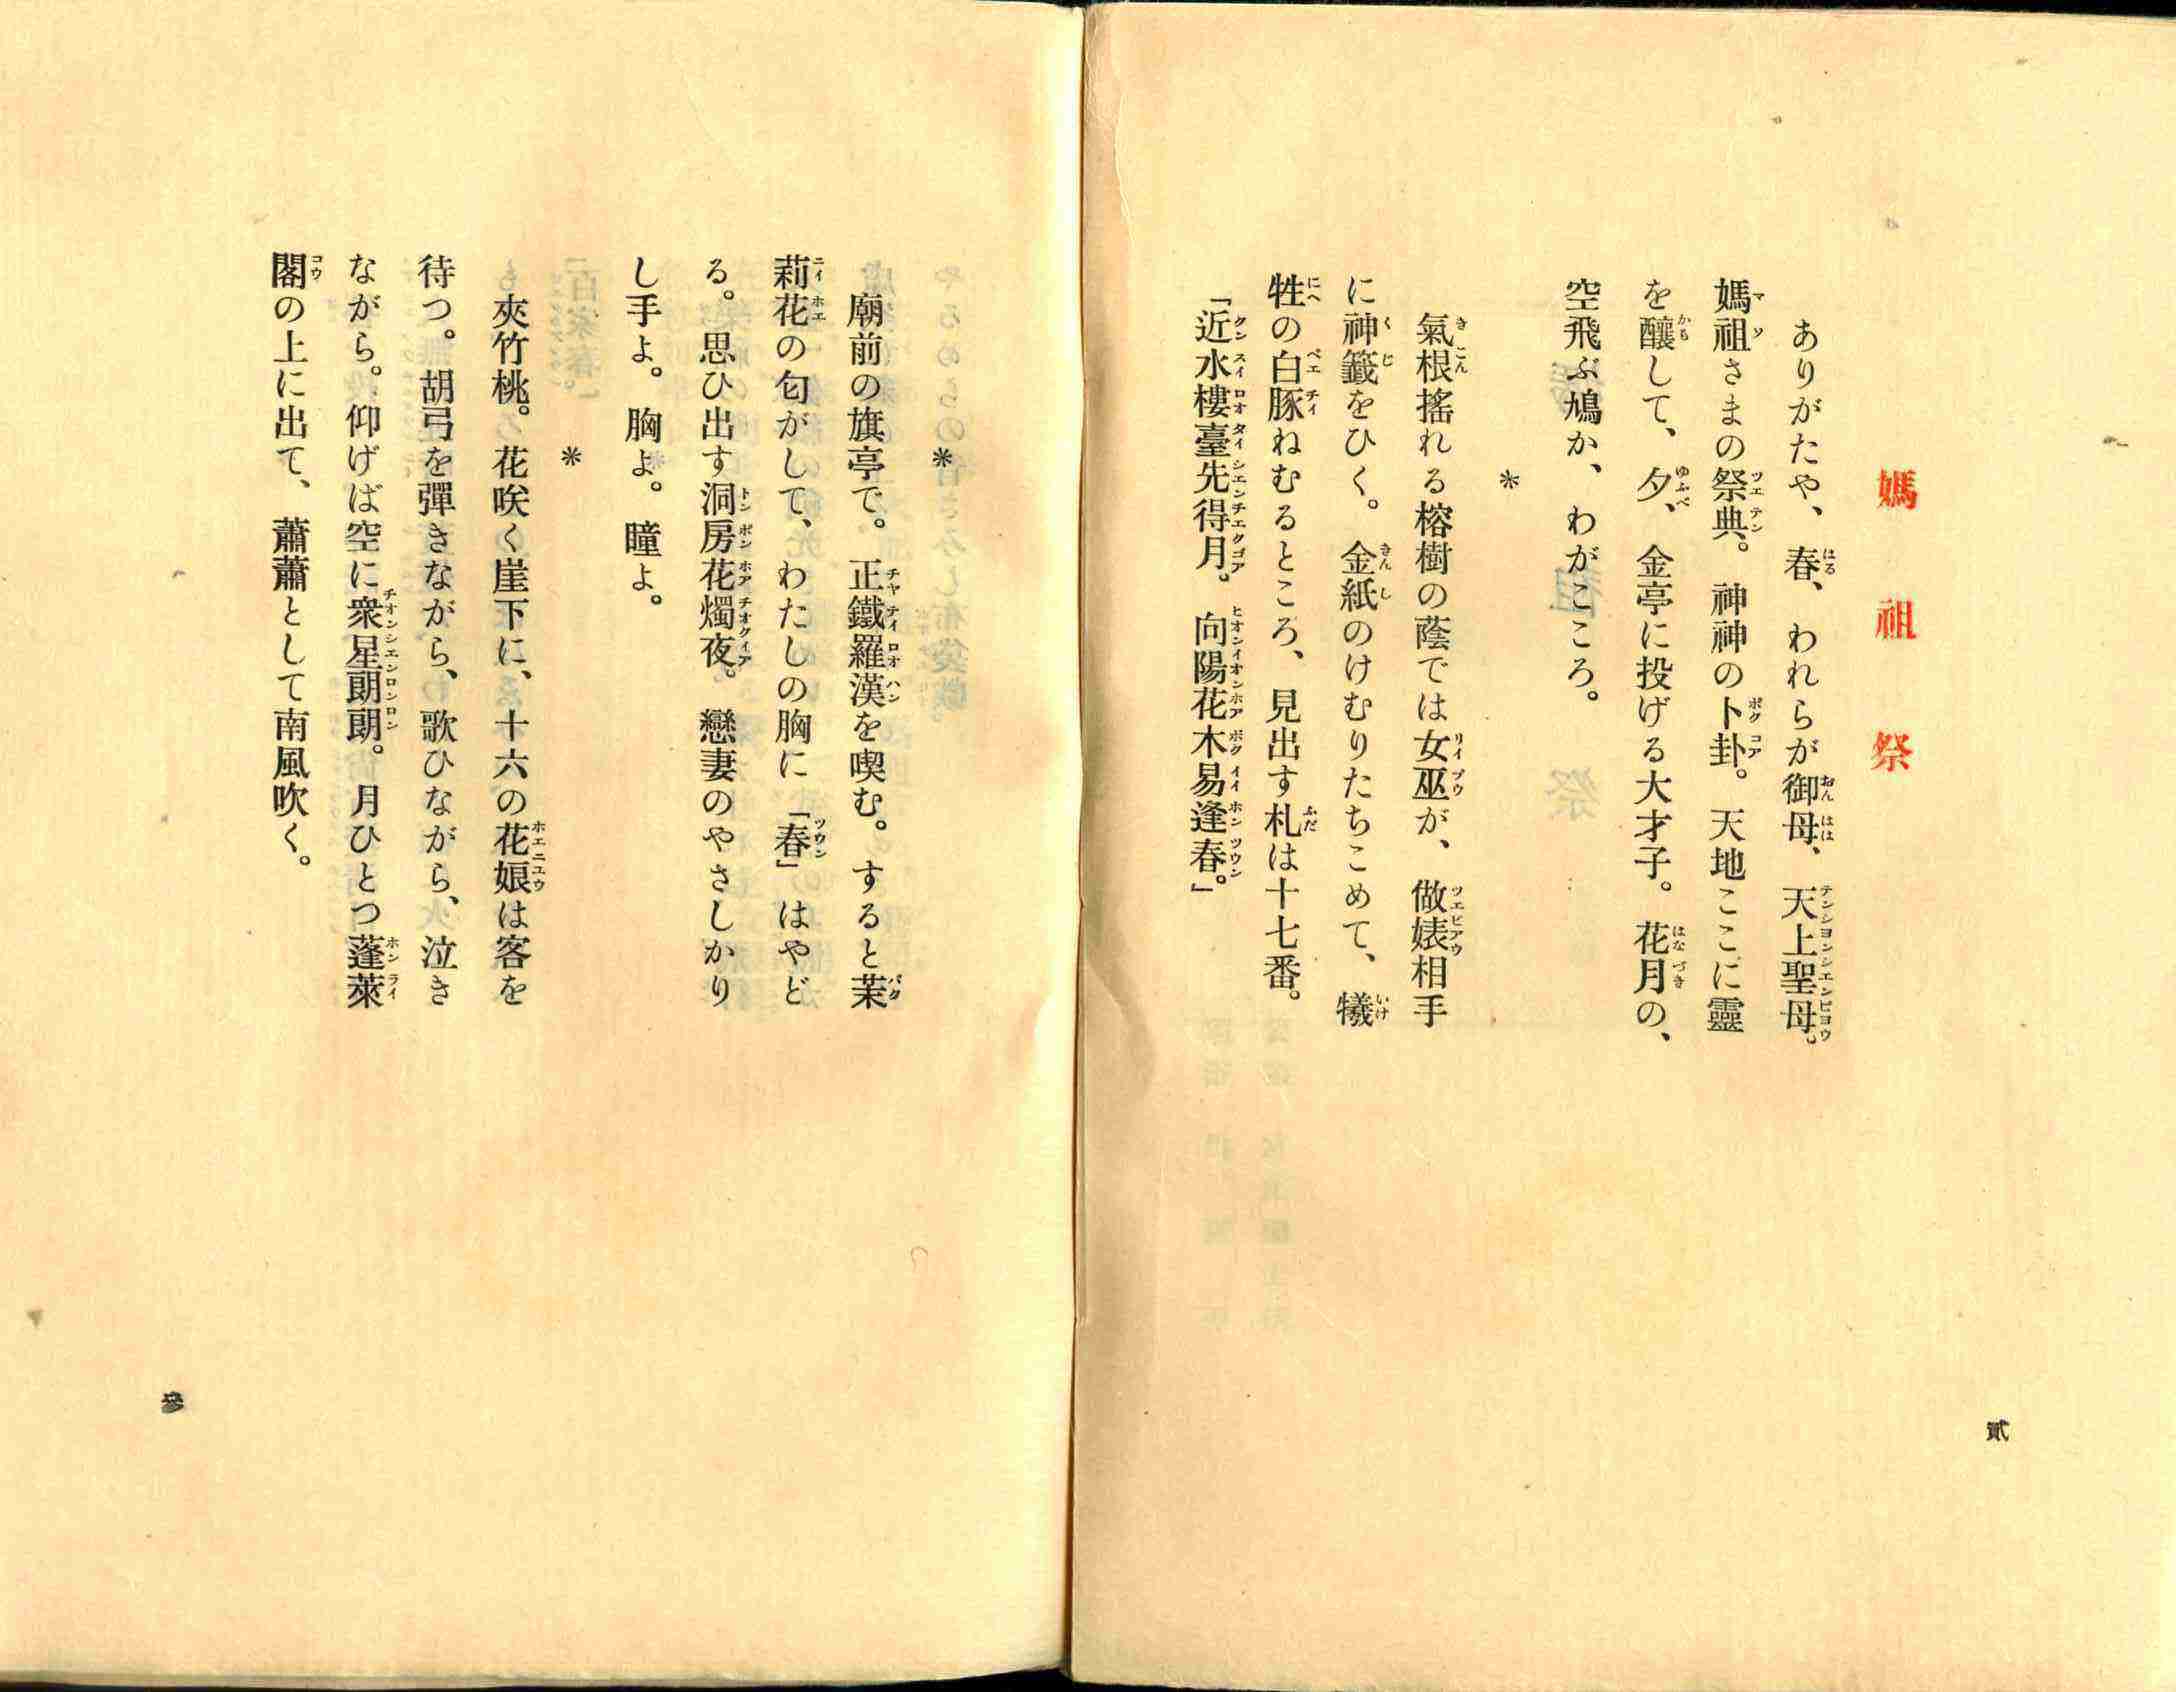 媽祖祭
ありがたや、春、われらが御母、天上聖母。
媽祖さまの祭典。神神の卜卦。天地ここに靈
を釀して、夕、金亭に投げる大才子。花月の、
空飛ぶ鳩か、わがこころ。
*
氣根搖れる榕樹の蔭では女巫が、做婊相手
に神籤をひく。金紙のけむりたちこめて、犠
牲の白豚ねむるところ、見出す札は十七番。
「近水樓臺先得月。向陽花木易逢春。」
貳
*
廟前の旗亭で。正鐵羅漢を喫む。すると茉
莉花の匂がして、わたしの胸に「春」はやど
る。思ひ出す洞房花燭夜。戀妻のやさしかり
し手よ。胸よ。瞳よ。
*
夾竹桃。花咲く崖下に、十六の花娘は客を
待つ。胡弓を彈きながら、歌ひながら、泣き
ながら。仰げば空に衆星朗朗。月ひとつ蓬萊
閣の上に出て、蕭蕭として南風吹く。
參